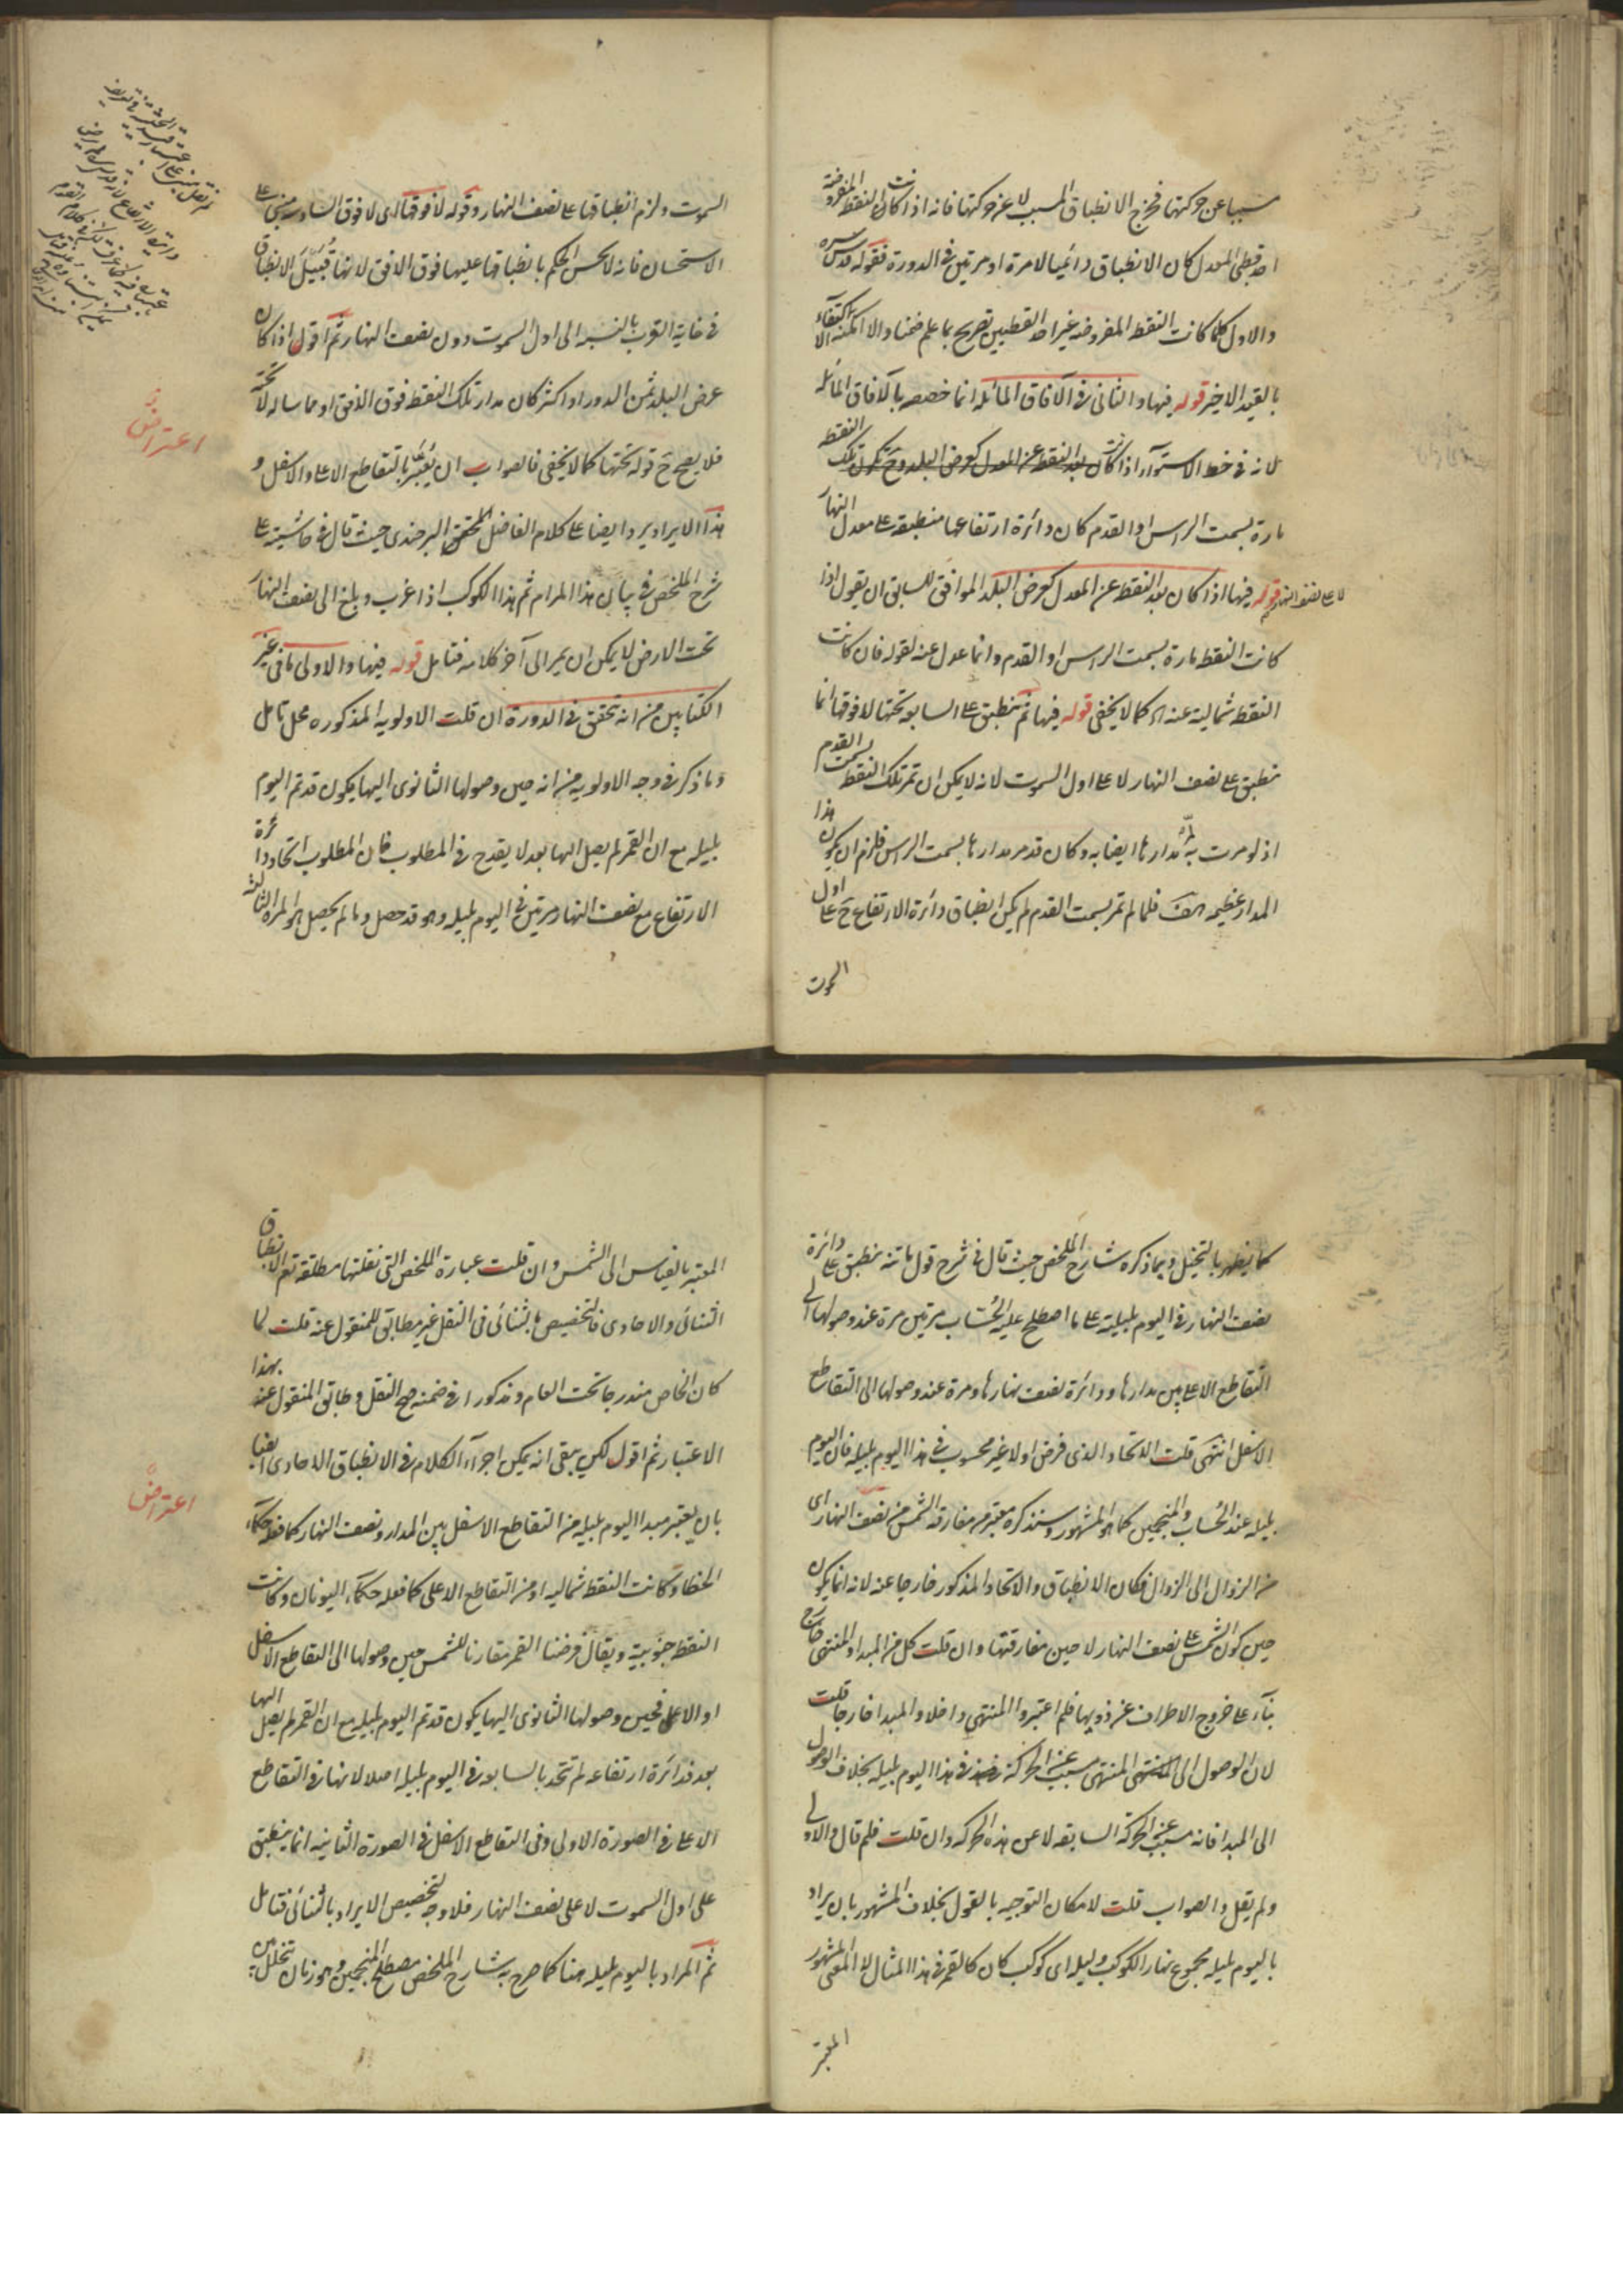 سببا عن حركتها فخرج الانطباق المسبب لا عن حركتها فانه اذا كانت النقطة المفروضة
احد قطبي المعدل كان الانطباق دائميا لا مرة او مرتين في الدورة فقوله قدس سره
والاول كلما كانت النقطة المفروضه غير احد القطبين تصريح بما علم ضمنا والا امكنه الاكتفاء
بالقيد الاخير قوله فيها والثاني في الآفاق المائله انما خصصه بالآفاق المائله
لانه في خط الاستوآء اذا كانت النقطه
مارة بسمت الراس او القدم كان دائرة ارتفاعها منطبقة على معدل النهار
لا على نصف النهار قوله فيها اذا كان بعد النقطة عن المعدل كعرض البلد الموافق للسابق ان يقول اذا
كانت النقطه مارة بسمت الراس او القدم وانما عدل عنه لقوله فان كانت
النقطه شمالية عنه اه كما لا يخفى قوله فيها ثم تنطبق على السابعه تحتها لا فوقها انما
تنطبق على نصف النهار لا على اول السموت لانه لا يمكن ان تمر تلك النقطه بسمت القدم
اذ لو مرت به لمرّ مدارها ايضا به وكان قد مر مدارها بسمت الراس فلزم ان يكون هذا
المدار عظيمه هف فلما لم تمر بسمت القدم لم يكن انطباق دائرة الارتفاع ح على اول
السموت
السموت ولزم انطباقها على نصف النهار وقوله لا فوقها اى لا فوق السادسه مبنى على
الاستحسان فانه لا يحسن الحكم بانطباقها عليها فوق الافق لانها قُبَيْل الانطباق
في غاية القرب بالنسبه الى اول السموت دون نصف النهار ثم اقول اذا كان
عرض البلد ثمن الدور او اكثر كان مدار تلك النقطه فوق الافق او مماسا له لا تحته
فلا يصح ح قوله تحتها كما لا يخفى فالصواب ان يُعَبَّر بالتقاطع الاعلى والاسفل و
هذا الايراد يرد ايضا على كلام الفاضل المحقق البرجندى حيث قال في حاشيته على
شرح الملخص في بيان هذا المرام ثم هذا الكوكب اذا غرب وبلغ الى نصف النهار
تحت الارض لا يمكن ان يمر الى آخر كلامه فتامل قوله فيها والاولى ما في غير
الكتابين من انه تحقق في الدورة ان قلت الاولويه المذكوره محل تامل
وما ذكر في وجه الاولويه من انه حين وصولها الثانوى اليها يكون قد تم اليوم
بليله مع ان القمر لم يصل اليها بعد لا يقدح في المطلوب فان المطلوب اتحاد دائرة
الارتفاع مع نصف النهار مرتين في اليوم بليله وهو قد حصل وما لم يحصل هو المرة الثالثة
اعتراض
كما يظهر بالتخيل وبما ذكره شارح الملخص حيث قال في شرح قول ماتنه تنطبق على دائرة
نصف النهار في اليوم بليلته على ما اصطلح عليه الحُسّاب مرتين مرة عند وصولها الى
التقاطع الاعلى بين مدارها ودائرة نصف نهارها ومرة عند وصولها الى التقاطع
الاسفل انتهى قلت الاتحاد الذى فرض اولا غير محسوب في هذا اليوم بليله فان اليوم
بليله عند الحُساب والمنجمين كما هو المشهور وسنذكره معتبر من مفارقة الشمس من نصف النهار اى
من الزوال الى الزوال فكان الانطباق والاتحاد المذكور خارجا عنه لانه انما يكون
حين كون الشمس على نصف النهار لا حين مفارقتها وان قلت كل من المبدا والمنتهى خارج
بنآء على خروج الاطراف عن ذويها فلم اعتبروا المنتهى داخلا والمبدا خارجا قلت
لان الوصول الى المنتهى مسبب عن الحركة في هذا اليوم بليله بخلاف الوصول
الى المبدا فانه مسبب عن الحركة السابقه لا عن هذه الحركه وان قلت فلم قال والاولى
ولم يقل والصواب قلت لامكان التوجيه بالقول بخلاف المشهور بان يراد
باليوم بليله مجموع نهار الكوكب وليله اى كوكب كان كالقمر في هذا المثال لا المعنى المشهور
المعتبر
المعتبر بالقياس الى الشمس وان قلت عبارة الملخص التى نقلتها مطلقة تعم الانطباق
الثنائى والاحادى فالتخصيص بالثنائى في النقل غير مطابق للمنقول عنه قلت لما
كان الخاص مندرجا تحت العام ومذكورا في ضمنه صح النقل وطابق المنقول عنه بهذا
الاعتبار ثم اقول لكن يبقى انه يمكن اجرآء الكلام في الانطباق الاحادى ايضا
بان يعتبر مبدا اليوم بليله من التقاطع الاسفل بين المدار ونصف النهار كما فعله حكمآء
الخطا وكانت النقطه شماليه او من التقاطع الاعلى كما فعله حكمآء اليونان وكانت
النقطه جنوبية ويقال فرضنا القمر مقارنا للشمس حين وصولها الى التقاطع الاسفل
او الاعلى فحين وصولها الثانوى اليها يكون قد تم اليوم بليله مع ان القمر لم يصل اليها
بعد فدائرة ارتفاعه لم تتحد بالسابعه في اليوم بليله اصلا لانها في التقاطع
الاعلى في الصورة الاولى وفى التقاطع الاسفل في الصورة الثانيه انما ينطبق
على اول السموت لا على نصف النهار فلا وجه لتخصيص الايراد بالثنائى فتامل
ثم المراد باليوم بليله هنا كما صرح به شارح الملخص مصطلح المنجمين وهو زمان تخلل بين
اعتراض